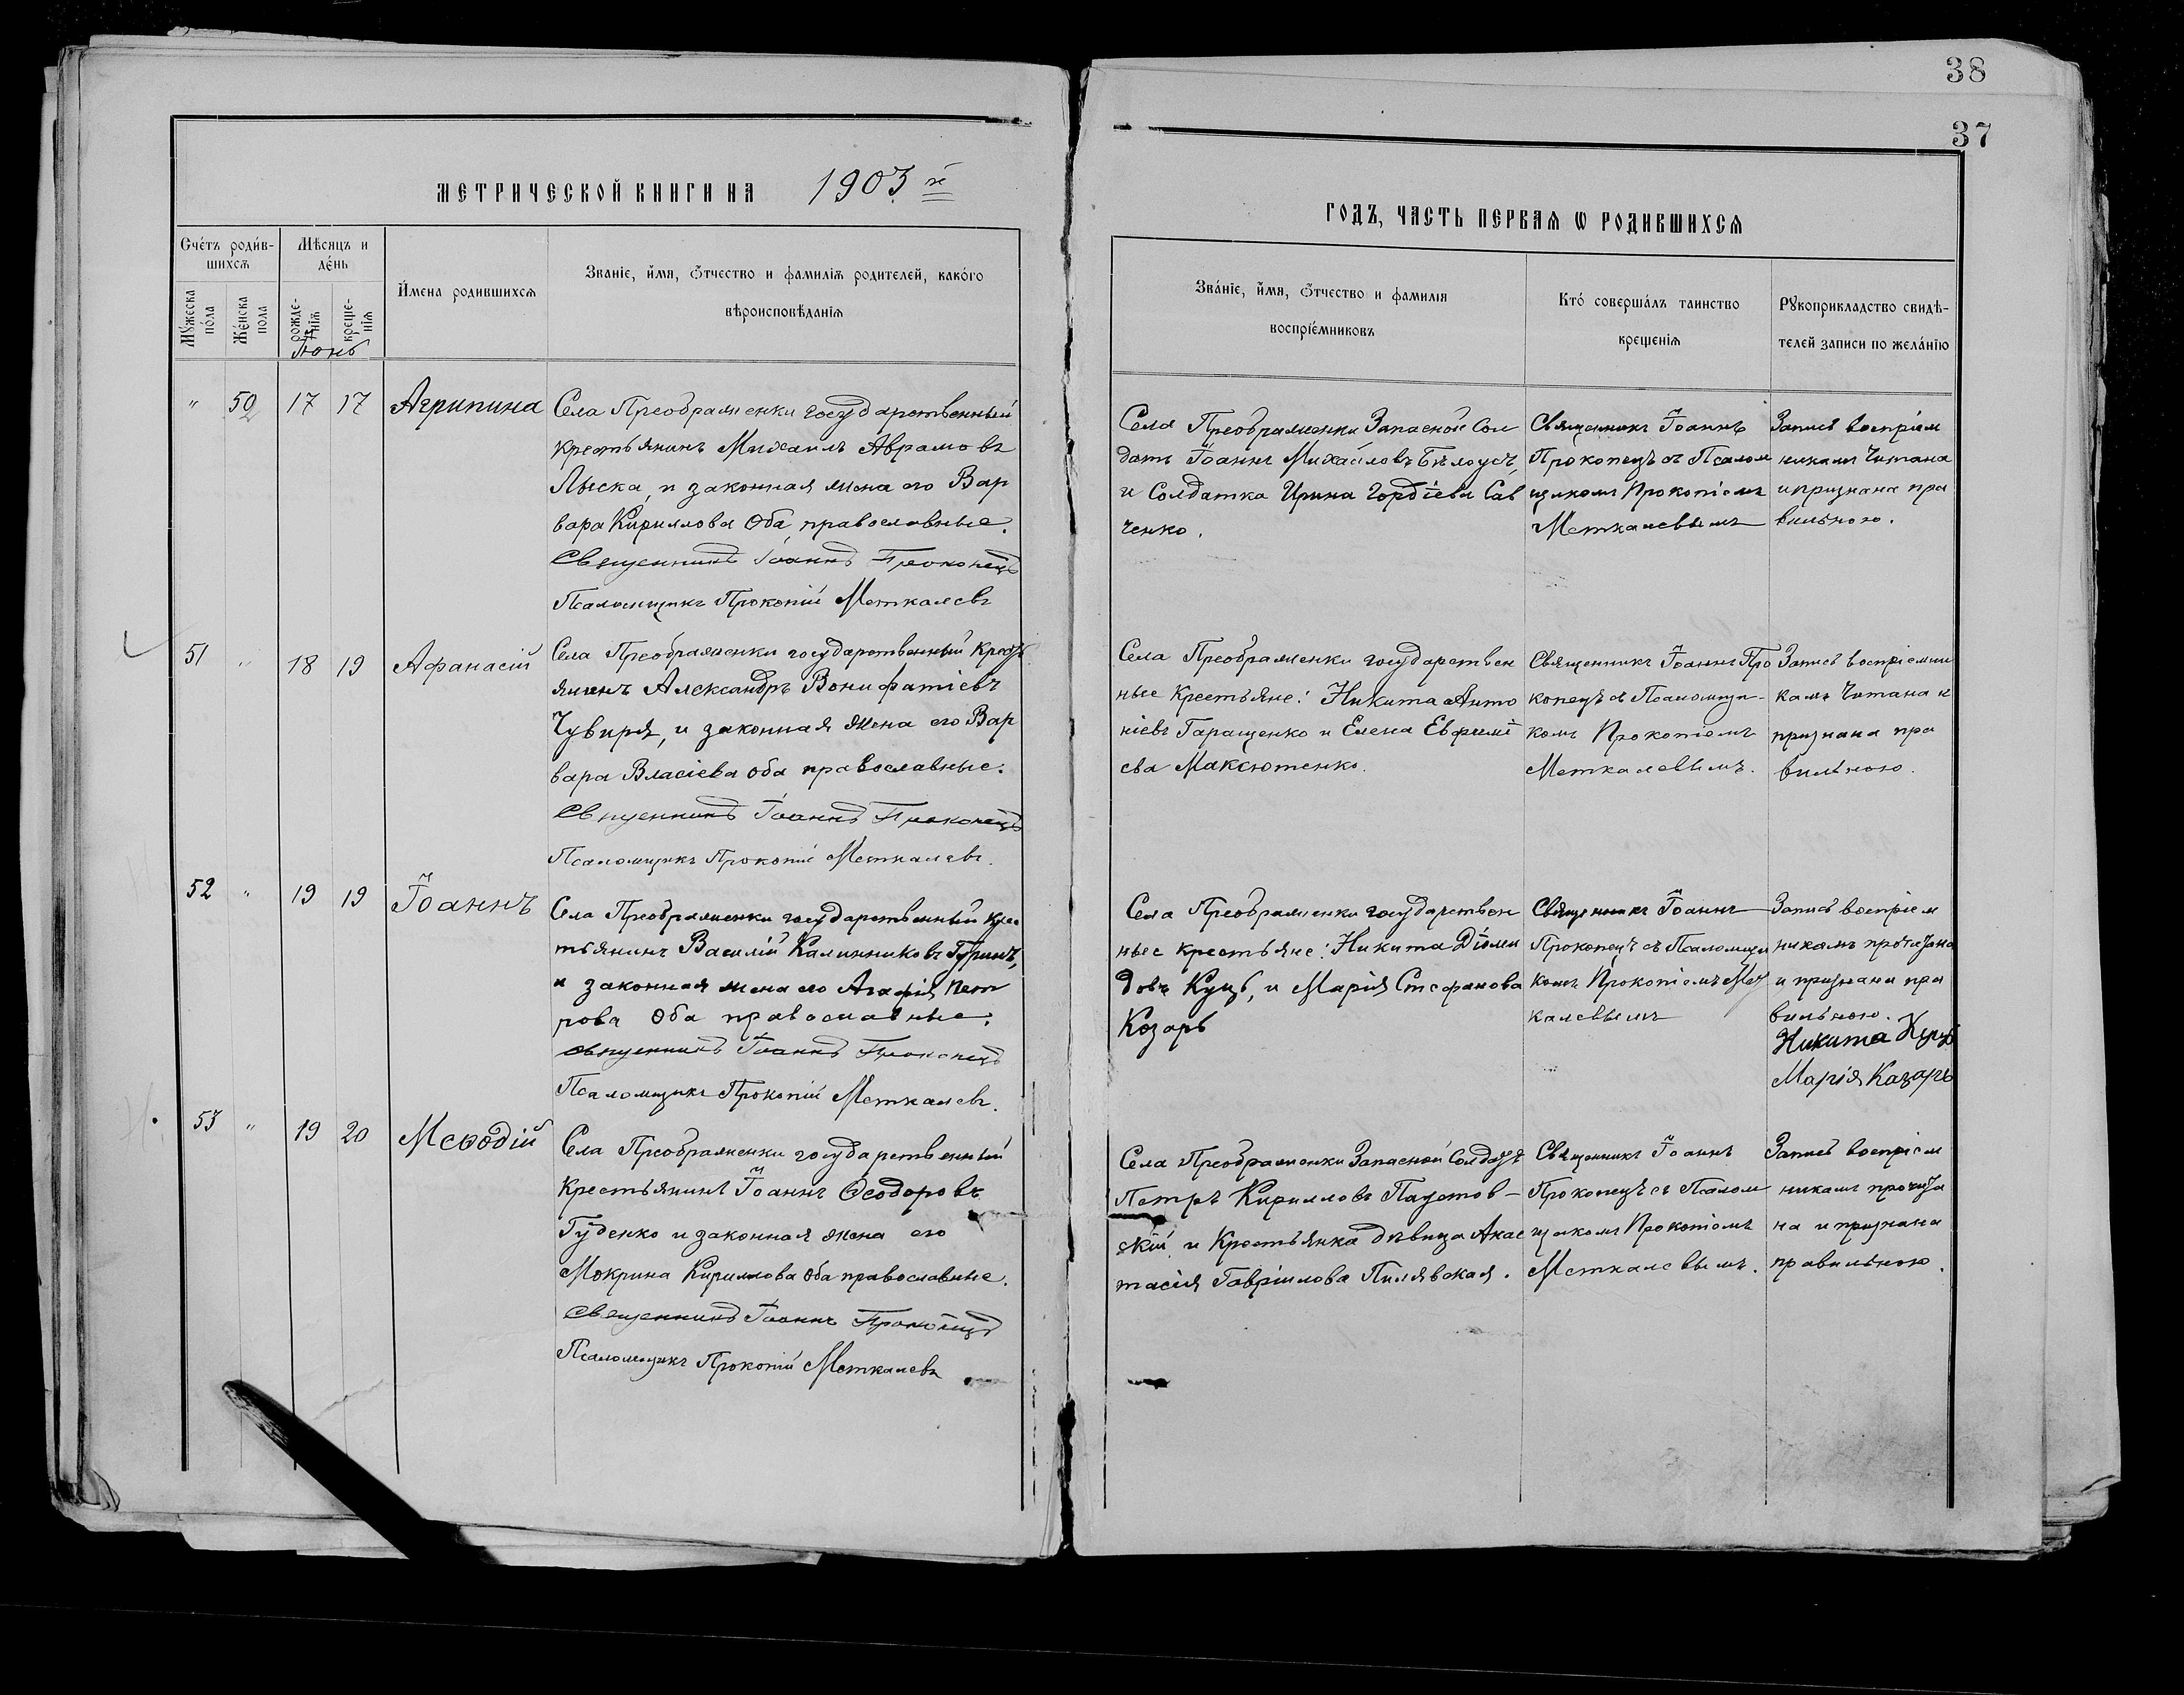 38
37
МЕТРИЧЕСКОЙ КНИГИ НА 1903 й
ГОДЪ, ЧАСТЬ ПЕРВАЯ Ѡ РОДИВШИХСЯ
Счетъ родив-
шихся
Мѣсяцъ и
день
Мужеска
пола
Женска
пола
рожде-
нія
креще-
нія
Имена родившихся
Званіе, имя, отчество и фамилія родителей, какого
вѣроисповѣданія
Званіе, имя, отчество и фамилія
воспріемниковъ
Кто совершалъ таинство
крещенія
Рукоприкладство свидѣ-
телей записи по желанію
Іюнь
" 50 17 17 Агрипина
Села Преображенки государственный
крестьянинъ Михаилъ Аврамовъ
Лыска, и законная жена его Вар
вара Кириллова оба православные.
Священникъ Іоаннъ Прокопецъ
Псаломщикъ Прокопій Меткалевъ
Села Преображенки Запасной Сол
датъ Іоаннъ Михайловъ Бѣлоусъ,
и Солдатка Ирина Гордіева Сав
ченко.
Священникъ Іоаннъ
Прокопецъ съ Псалом
щикомъ Прокопіемъ
Меткалевымъ
Запись воспріем
никамъ читана
и признана пра
вильною.
51 " 18 19 Афанасій
Села Преображенки государственный крест
янинъ Александръ Вонифатіевъ
Чувиря, и законная жена его Вар
вара Власіева оба православные.
Священникъ Іоаннъ Прокопецъ
Псаломщикъ Прокопій Меткалевъ.
Села Преображенки государствен
ные крестьяне: Никита Анто
ніевъ Гаращенко и Елена Евфимі
ева Максютенко.
Священникъ Іоаннъ Про
копецъ съ Псаломщи-
комъ Прокопіемъ
Меткалевымъ.
Запись воспріемни
камъ читана и
признана пра
вильною.
52 " 19 19 Іоаннъ
Села Преображенки государственный крес
тьянинъ Василій Калинниковъ Гуринъ,
и законная жена его Агафія Пет
рова оба православные.
Священникъ Іоаннъ Прокопецъ
Псаломщикъ Прокопій Меткалевъ.
Села Преображенки государствен
ные крестьяне: Никита Діоми
довъ Куцъ, и Марія Стефанова
Козарь
Священникъ Іоаннъ
Прокопецъ съ Псаломщи
комъ Прокопіемъ Мет
калевымъ
Запись воспріем
никамъ прочитана
и признана пра
вильною.
Никита Куцъ
Марія Казарь
53 " 19 20 Меѳодій
Села Преображенки государственный
крестьянинъ Іоаннъ Ѳеодоровъ
Гуденко и законная жена его
Мокрина Кириллова оба православные.
Священникъ Іоаннъ Прокопецъ
Псаломщикъ Прокопій Меткалевъ
Села Преображенки Запасной Солдатъ
Петръ Кирилловъ Паустов-
скій, и Крестьянка дѣвица Анас
тасія Гавріилова Пилявская.
Священникъ Іоаннъ
Прокопецъ съ Псалом
щикомъ Прокопіемъ
Меткалевымъ.
Запись воспріем
никамъ прочита
на и признана
правильною.